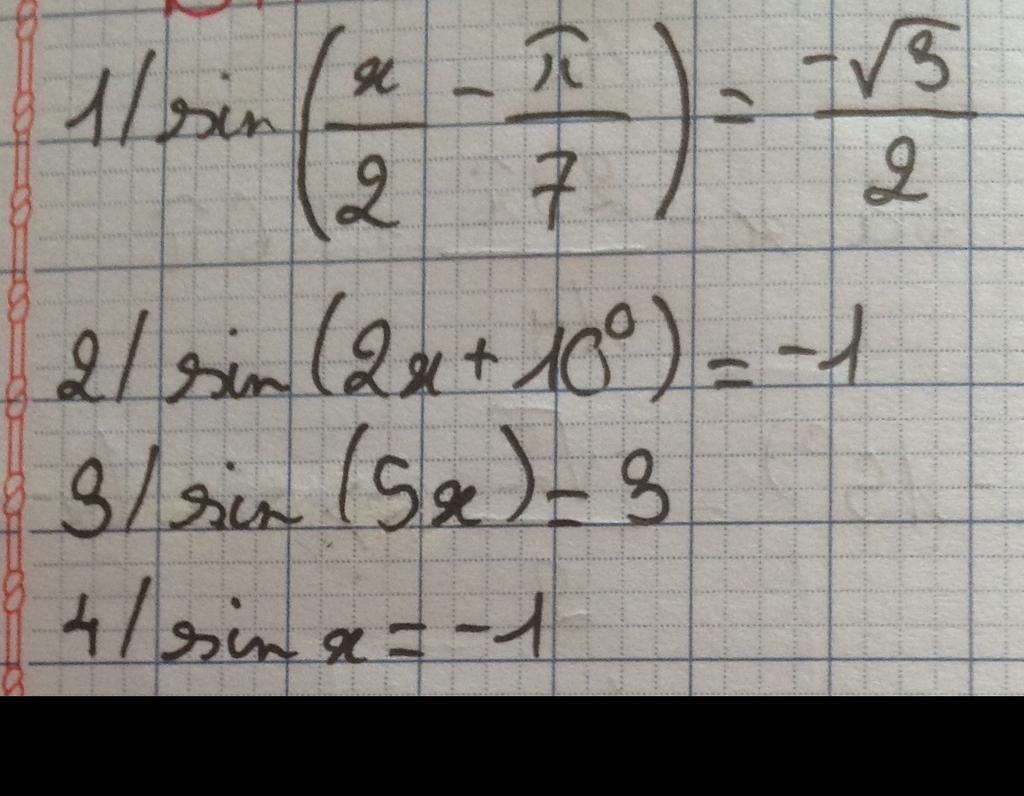 1/ sin(x/2 - π/7) = -√3/2
2/ sin(2x + 10°) = -1
3/ sin(5x) = 3
4/ sin x = -1